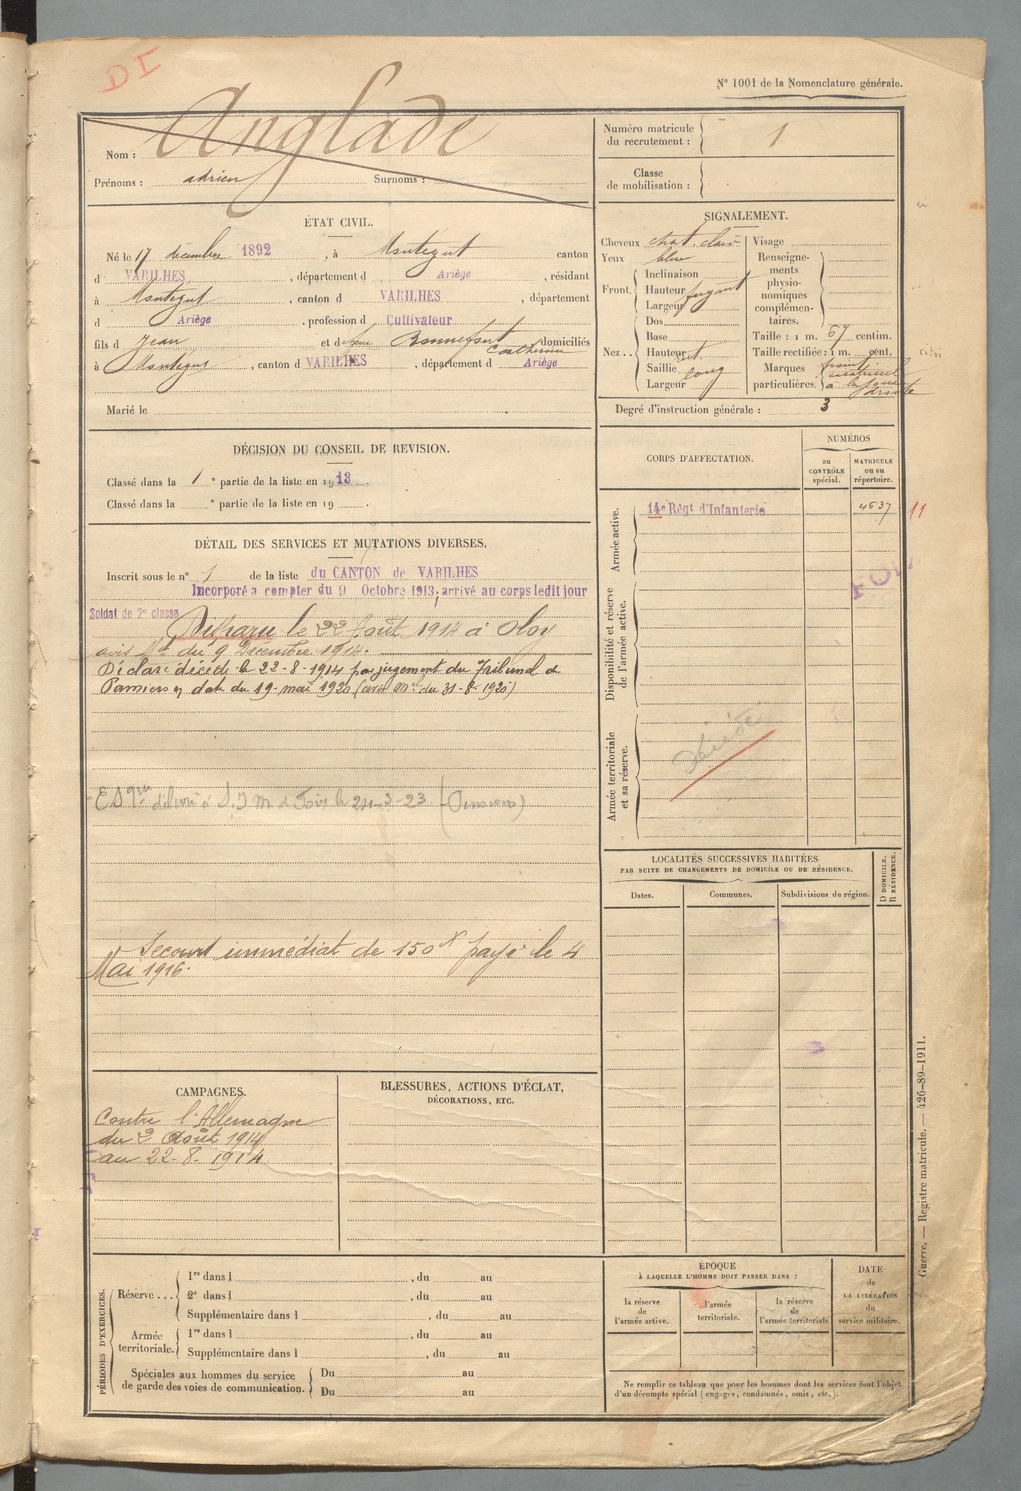 DI
N° 1001 de la Nomenclature générale.
Nom : Anglade
Prénoms : adrien Surnoms :
Numéro matricule du recrutement : 1
Classe de mobilisation :
ÉTAT CIVIL.
Né le 17 décembre 1892, à Montegut canton
d VARILHES, département d Ariège, résidant
à Montegut, canton d VARILHES, département
d Ariège, profession d Cultivateur
fils d Jean et d Bonnefont Catherine domiciliés
à Montegut, canton d VARILHES, département d Ariège
Marié le
SIGNALEMENT.
Cheveux chat. clair
Yeux bleu
Front. Inclinaison
Hauteur fuyant
Largeur
Nez.. Dos
Base
Hauteur
Saillie long
Largeur
Visage
Renseignements physionomiques complémentaires.
Taille : 1 m. 67 centim.
Taille rectifiée : 1 m. cent.
Marques particulières.
Degré d'instruction générale : 3
DÉCISION DU CONSEIL DE REVISION.
Classé dans la 1 e partie de la liste en 1913
Classé dans la e partie de la liste en 19 .
CORPS D'AFFECTATION.
NUMÉROS
au CONTRÔLE spécial.
MATRICULE ou au répertoire.
Armée active.
14e Régt d'Infanterie 4637 11
Disponibilité et réserve de l'armée active.
Armée territoriale et sa réserve.
DÉTAIL DES SERVICES ET MUTATIONS DIVERSES.
Inscrit sous le n° 1 de la liste du CANTON de VARILHES
Incorporé a compter du 9 Octobre 1913, arrivé au corps ledit jour
Soldat de 2e classe
Disparu le 22 Août 1914 à
avis Mel du 9 Décembre 1914.
Déclaré décédé le 22-8-1914 par jugement du Tribunal de
Pamiers en date du 19 mai 1920 (avis Mel du 31-8-1920)
délivré à S.I.M. de Foix le
Secours immédiat de 150f payé le 4
Mai 1916.
LOCALITÉS SUCCESSIVES HABITÉES
PAR SUITE DE CHANGEMENTS DE DOMICILE OU DE RÉSIDENCE.
Dates. Communes. Subdivisions de région.
D DOMICILE. R RÉSIDENCE.
CAMPAGNES.
Contre l'Allemagne
du 2 Août 1914
au 22-8-1914
BLESSURES, ACTIONS D'ÉCLAT,
DÉCORATIONS, ETC.
PÉRIODES D'EXERCICES.
Réserve... 1re dans l , du au
2e dans l , du au
Supplémentaire dans l , du au
Armée territoriale. 1re dans l , du au
Supplémentaire dans l , du au
Spéciales aux hommes du service
de garde des voies de communication.
Du au
Du au
ÉPOQUE
À LAQUELLE L'HOMME DOIT PASSER DANS :
la réserve de l'armée active.
l'armée territoriale.
la réserve de l'armée territoriale
DATE de LA LIBÉRATION du service militaire.
Ne remplir ce tableau que pour les hommes dont les services font l'objet
d'un décompte spécial (engagés, condamnés, omis, etc.).
Guerre. — Registre matricule. — 426-89-1911.